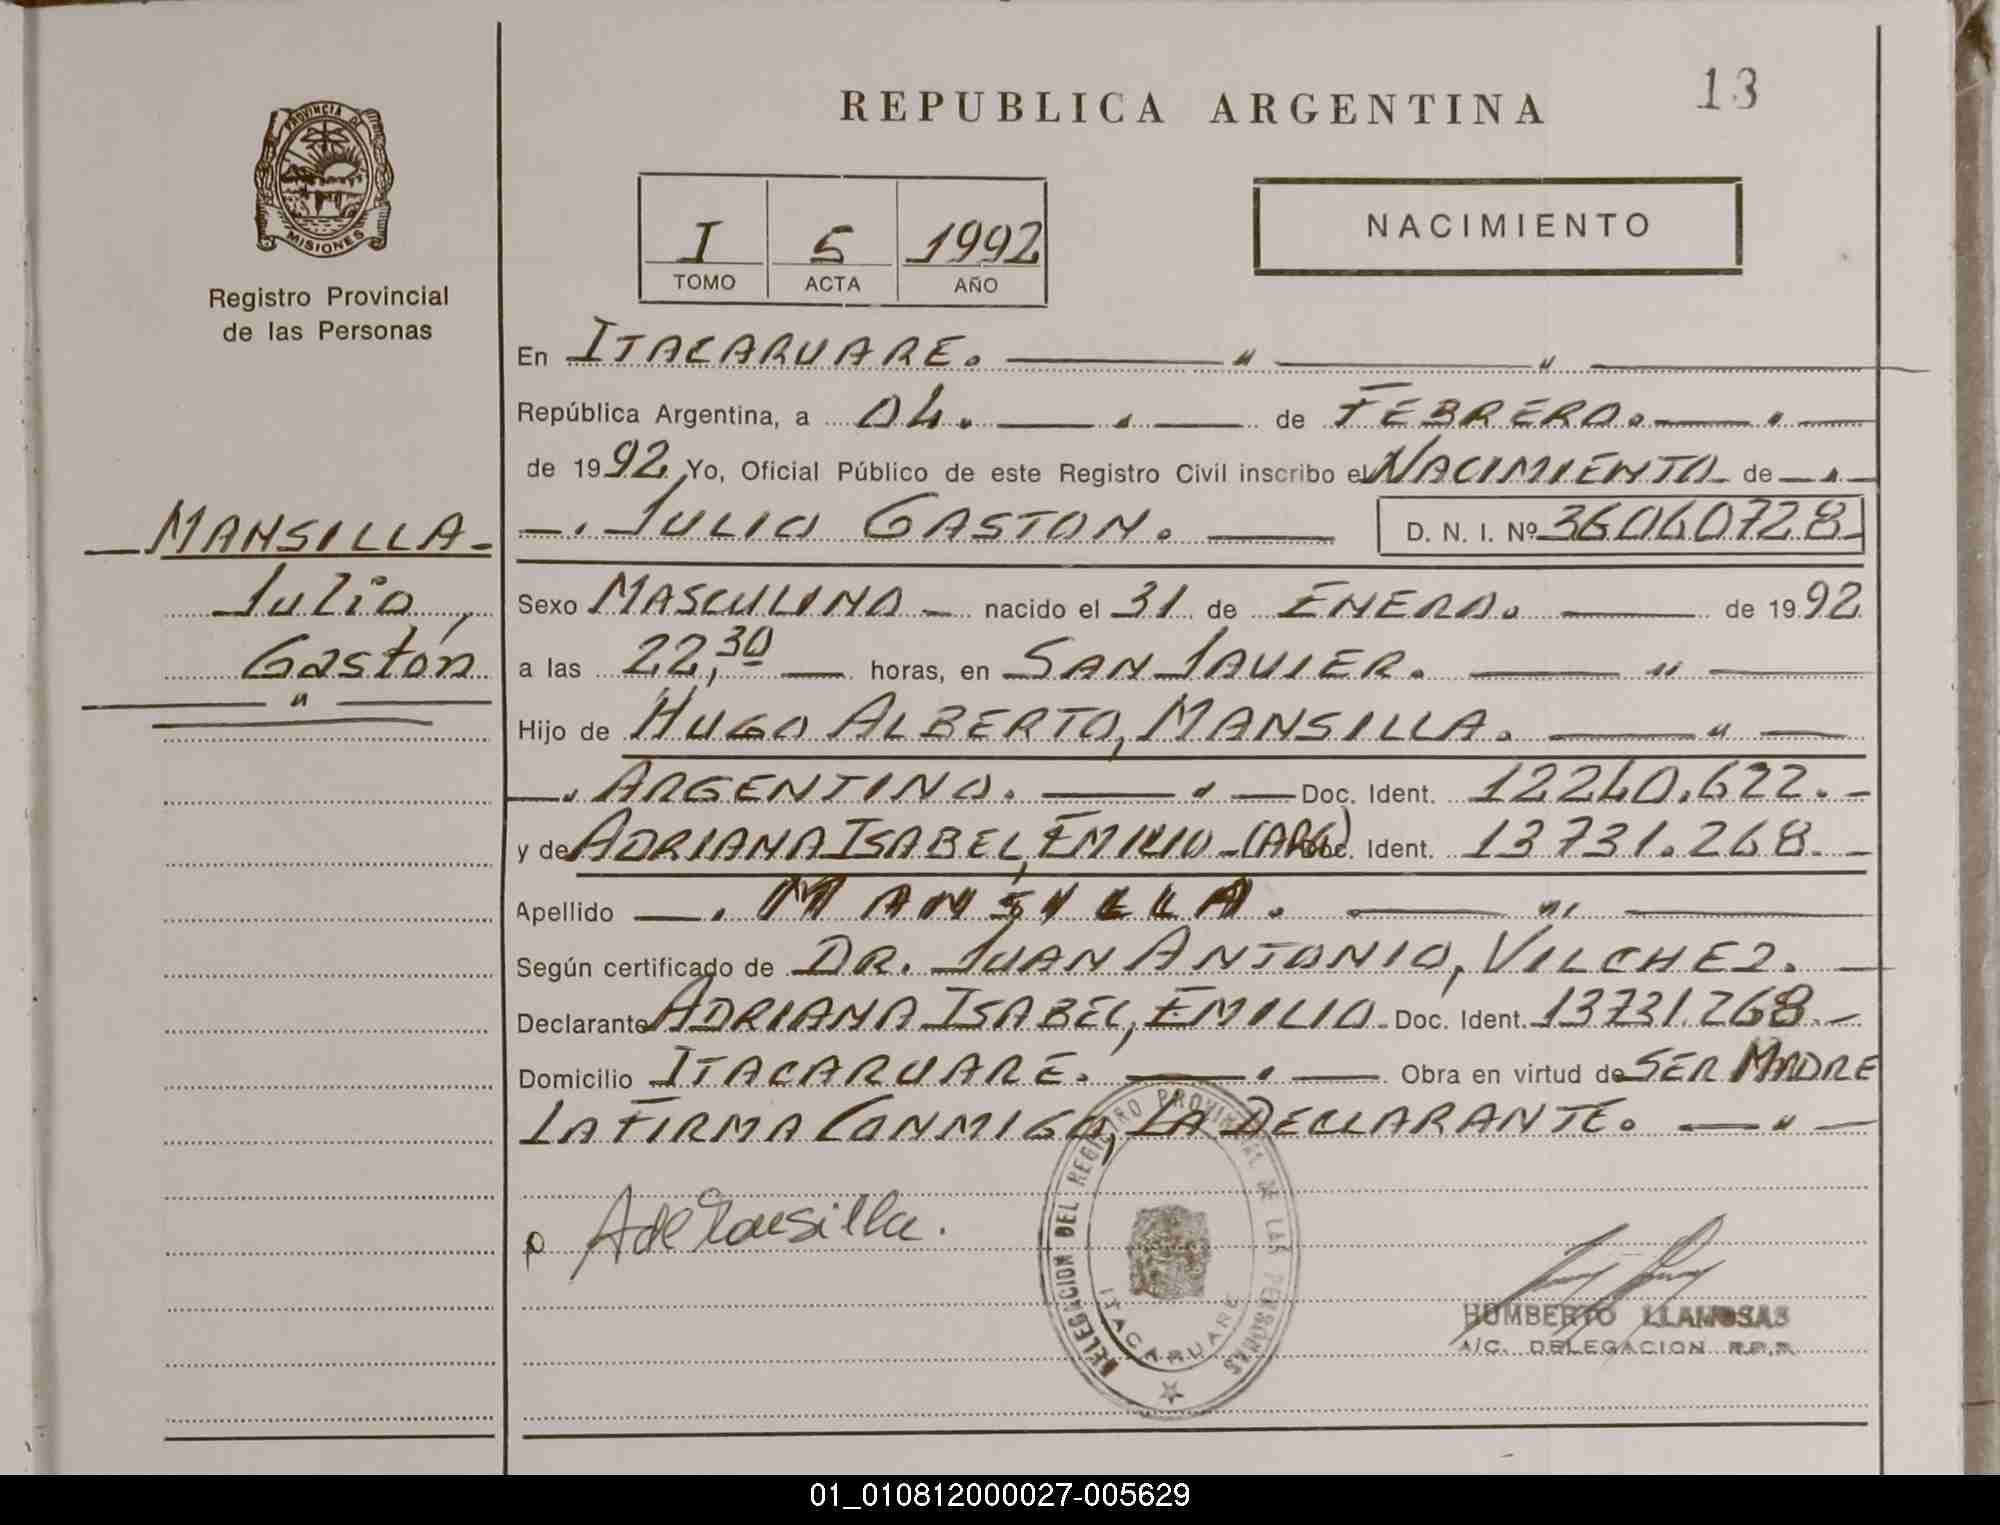 REPUBLICA ARGENTINA
13
PROVINCIA DE
MISIONES
Registro Provincial
de las Personas
I 5 1992
TOMO ACTA AÑO
NACIMIENTO
En ITACARUARE. — " — " —
República Argentina, a 04. — . — de FEBRERO. — . —
de 1992 Yo, Oficial Público de este Registro Civil inscribo el NACIMIENTO de — . —
— . JULIO GASTON. — D. N. I. Nº 36060728
MANSILLA
Julio,
Gastón
— " —
Sexo MASCULINO — nacido el 31 de ENERO. — de 1992
a las 22,30 — horas, en SAN JAVIER. — " —
Hijo de HUGO ALBERTO, MANSILLA. — " —
— . ARGENTINO. — " — Doc. Ident. 12240.622. —
y de ADRIANA ISABEL, EMILIO - (ARG) Doc. Ident. 13731.268. —
Apellido — . MANSILLA. — " —
Según certificado de DR. JUAN ANTONIO, VILCHEZ. —
Declarante ADRIANA ISABEL, EMILIO - Doc. Ident. 13731.268. —
Domicilio ITACARUARE. — . — Obra en virtud de SER MADRE
LA FIRMA CONMIGO, LA DECLARANTE. — " —
DELEGACION DEL REGISTRO PROVINCIAL DE LAS PERSONAS
ITACARUARE
HUMBERTO LLAMOSAS
A/C. DELEGACION R.P.P.
01_010812000027-005629